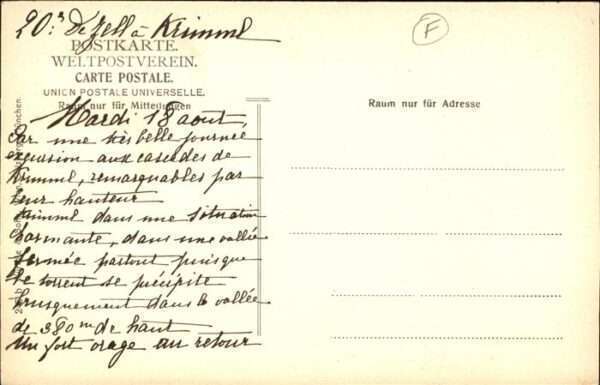 20.° de Zell à Krimml
F
POSTKARTE.
WELTPOSTVEREIN.
CARTE POSTALE.
UNION POSTALE UNIVERSELLE.
Raum nur für Mitteilungen
Raum nur für Adresse
Mardi 18 août,
Par une très belle journée
excursion aux cascades de
Krimml, remarquables par
leur hauteur
Krimml dans une situation
charmante, dans une vallée
fermée partout puisque
le torrent se précipite
brusquement dans la vallée
de 380m de haut
Un fort orage au retour